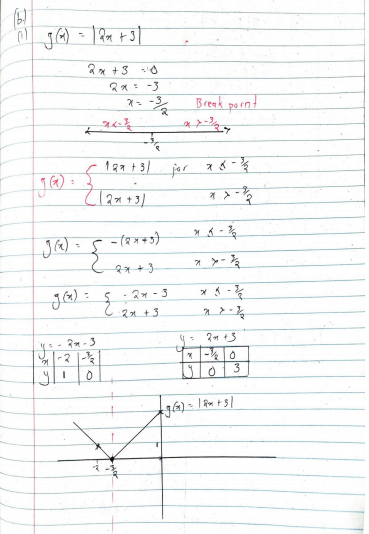 (b)
(i) g(x) = |2x + 3|
2x + 3 = 0
2x = -3
x = -3/2 Break point
x < -3/2 x > -3/2
-3/2
g(x) = { |2x + 3| for x < -3/2
|2x + 3| x > -3/2
g(x) = { -(2x + 3) x < -3/2
2x + 3 x > -3/2
g(x) = { -2x - 3 x < -3/2
2x + 3 x > -3/2
y = -2x - 3 y = 2x + 3
x -2 -3/2 x -3/2 0
y 1 0 y 0 3
g(x) = |2x + 3|
-2 -3/2